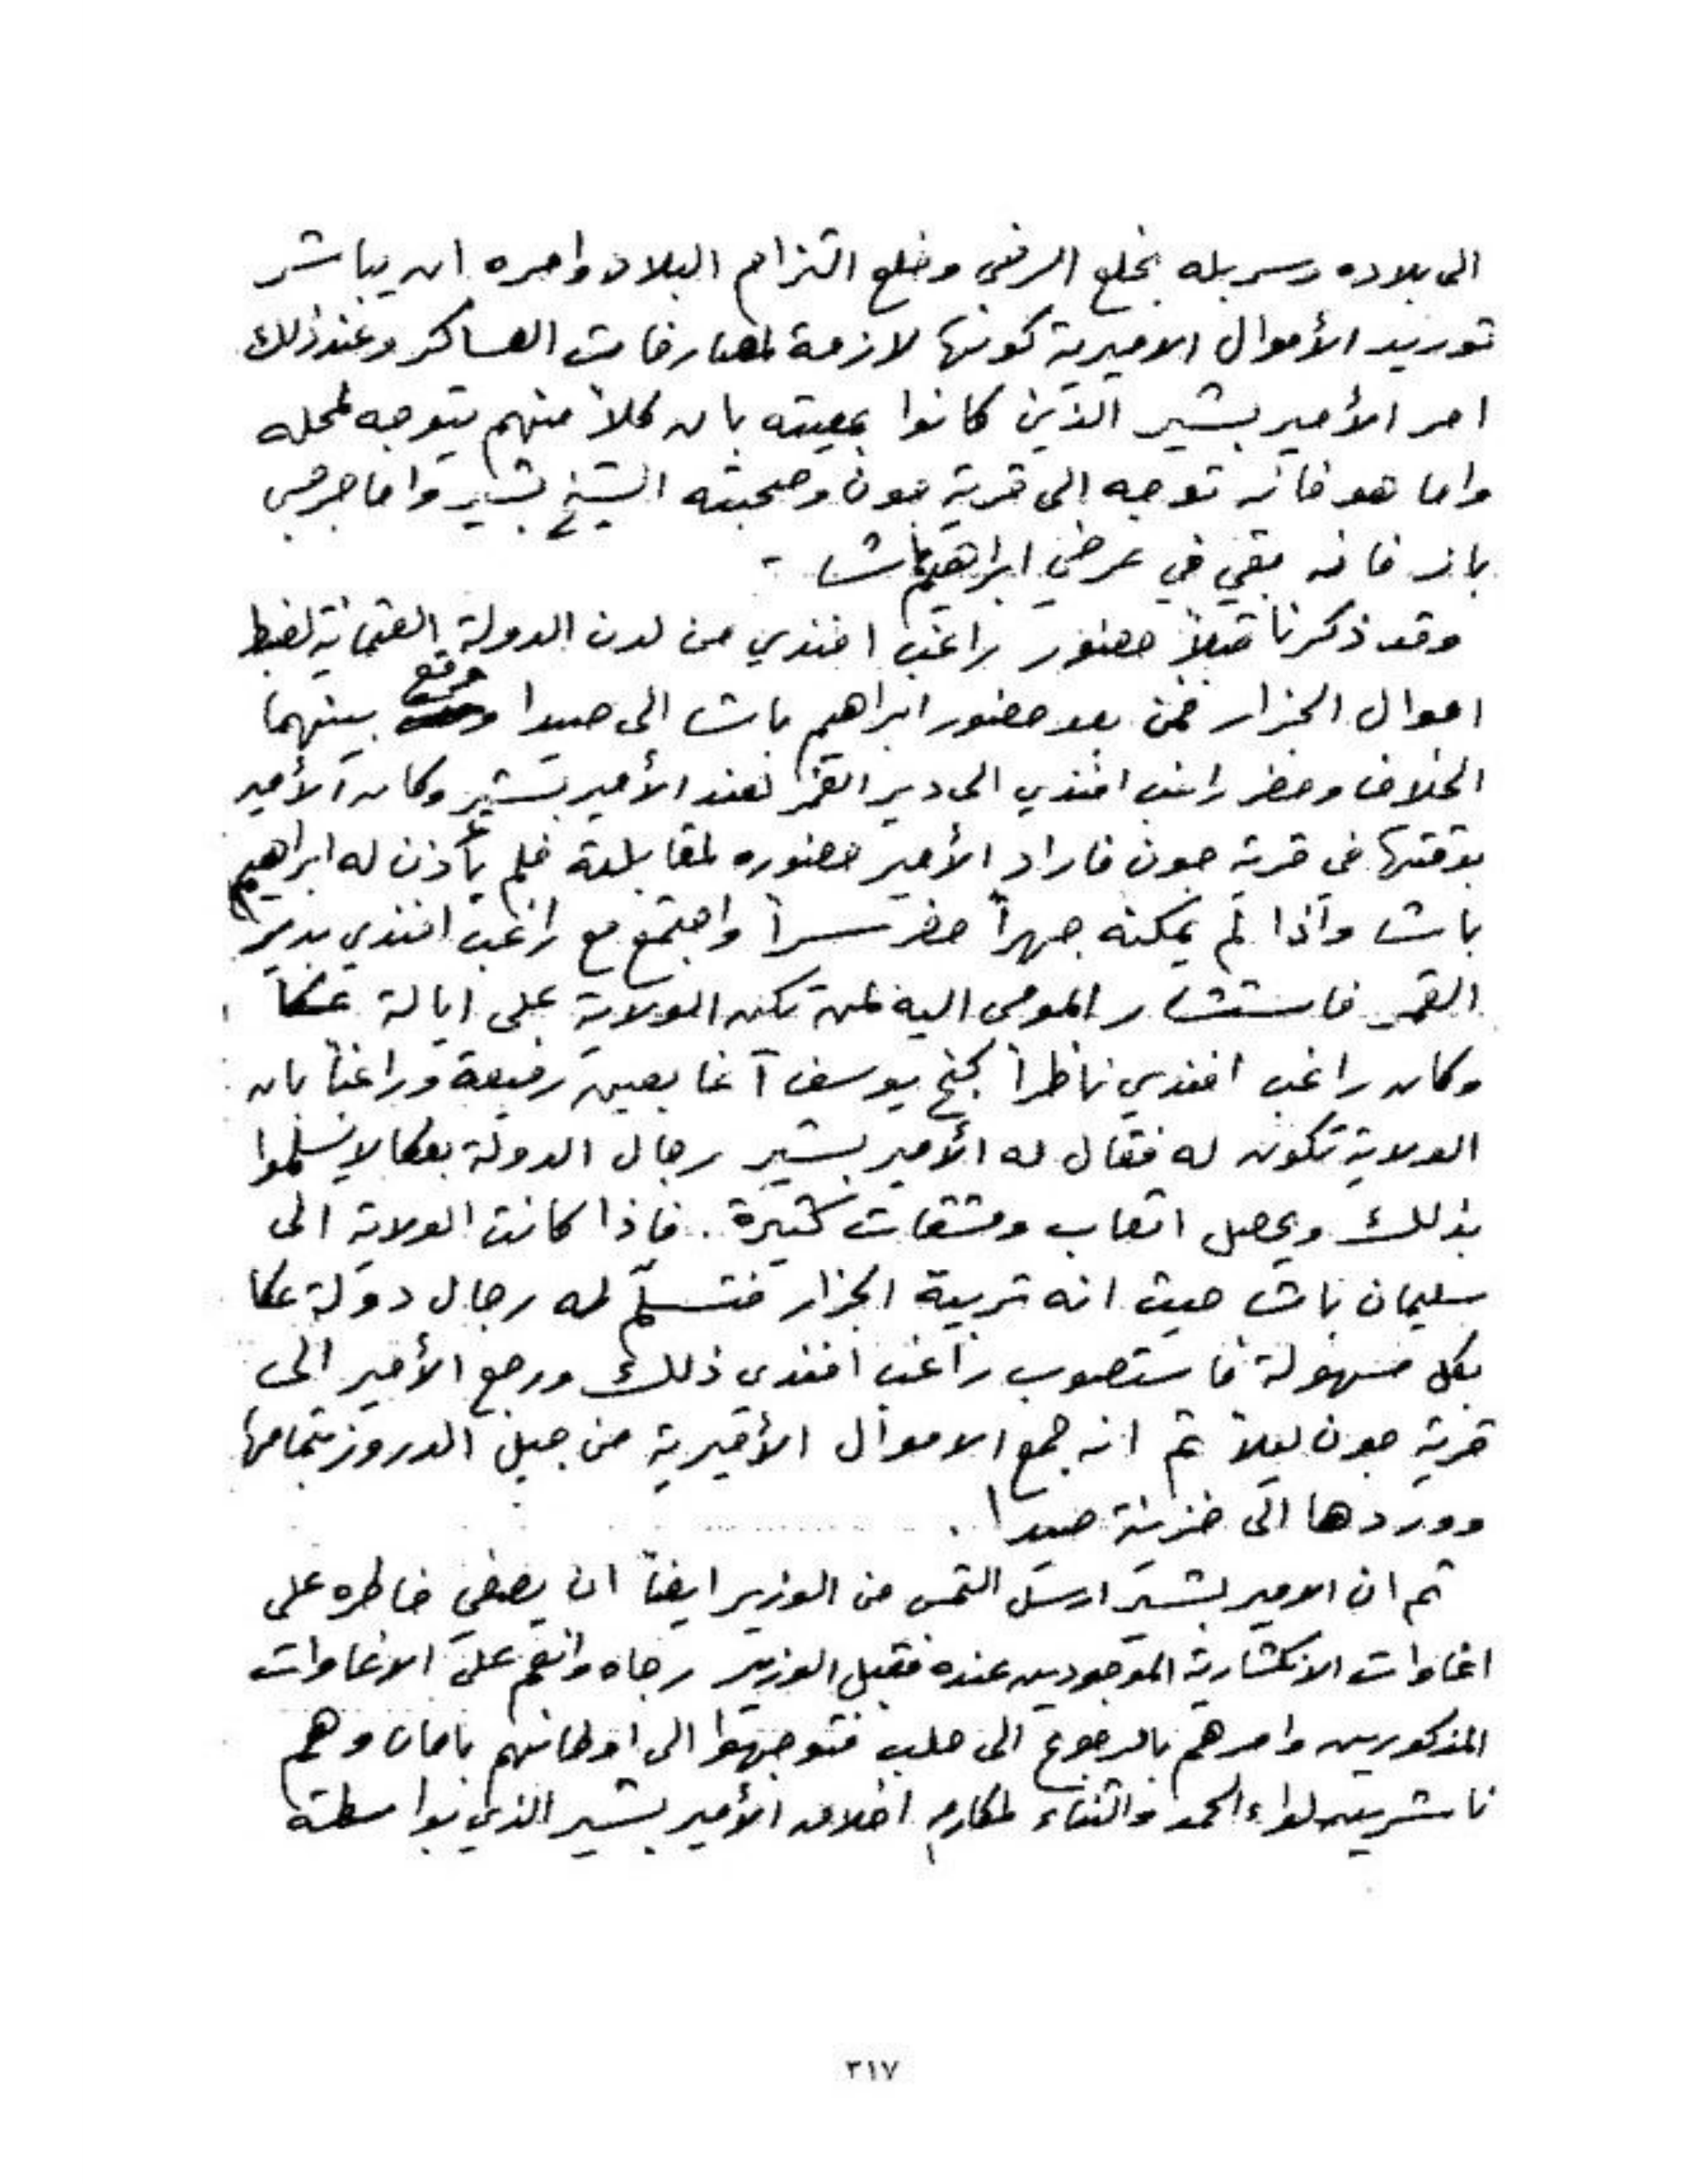 الى بلاده وسربله بخلع الرضى وخلع التزام البلاد وامره ان يباشر
توريد الأموال الاميرية كونها لازمة لمصارفات العساكر وعند ذلك
امر الأمير بشير الذين كانوا بمعيته بان كلاً منهم يتوجه لمحله
واما هو فانه توجه الى قرية جون وصحبته الشيخ بشير واما جرجس
باز فانه بقي في عرضي ابراهيم باشا -
وقد ذكرنا قبلاً حضور راغب افندي من لدن الدولة العثمانية لضبط
اموال الجزار فمن بعد حضور ابراهيم باشا الى صيدا وقع بينهما
الخلاف وحضر راغب افندي الى دير القمر لعند الأمير بشير وكان الأمير
بوقتها في قرية جون فاراد الأمير حضوره لمقابلته فلم يأذن له ابراهيم
باشا واذا لم يمكنه جهراً حضر سراً واجتمع مع راغب افندي بدير
القمر فاستشار المومى اليه لمن تكن الولاية على ايالة عكا
وكان راغب افندي ناظراً كنج يوسف آغا بعين رفيعة وراغباً بان
الولاية تكون له فقال له الأمير بشير رجال الدولة بعكا لا يسلموا
بذلك ويحصل اتعاب ومشقات كثيرة . فاذا كانت الولاية الى
سليمان باشا حيث انه تربية الجزار فتسلّم له رجال دولة عكا
بكل سهولة فاستصوب راغب افندي ذلك ورجع الأمير الى
قرية جون ليلاً ثم انه جمع الاموال الأميرية من جبل الدروز بتمامها
ووردها الى خزينة صيدا .
ثم ان الامير بشير ارسل التمس من الوزير ايضاً ان يصفي خاطره على
اغاوات الانكشارية الموجودين عنده فقبل الوزير رجاه وانعم على الاغاوات
المذكورين وامرهم بالرجوع الى حلب فتوجهوا الى اوطانهم بامان وهم
ناشرين لواء الحمد والثناء لمكارم اخلاق الأمير بشير الذي بواسطته
٣١٧